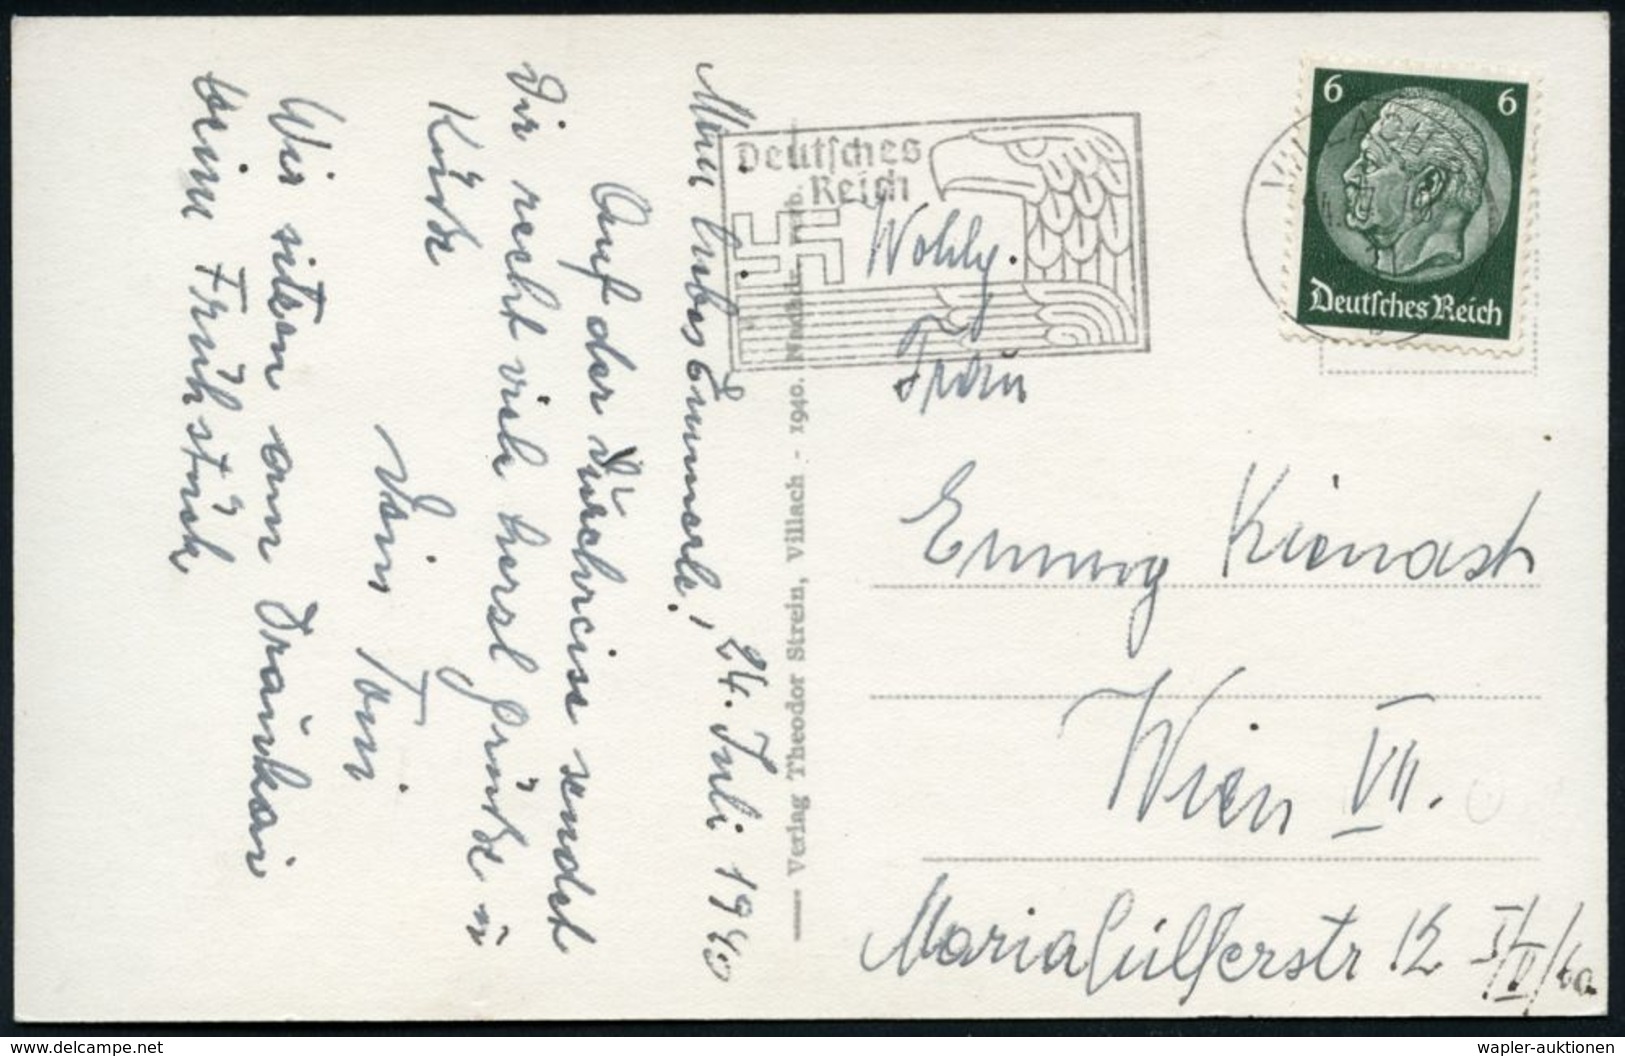 Mein liebes Emmerle! 24. Juli 1940
Auf der Durchreise sendet
Dir recht viele herzl Grüße u
Küße
Dein Toni
Wir sitzen am Draukai
beim Frühstück
Verlag Theodor Strein, Villach - 1940. Nachdr. verb.
Deutsches
Reich
VILLACH
6 6
Deutsches Reich
Wohlg.
Frau
Emmy Kienast
Wien VII.
Mariahilferstr 12
delcampe.net
wapler-auktionen